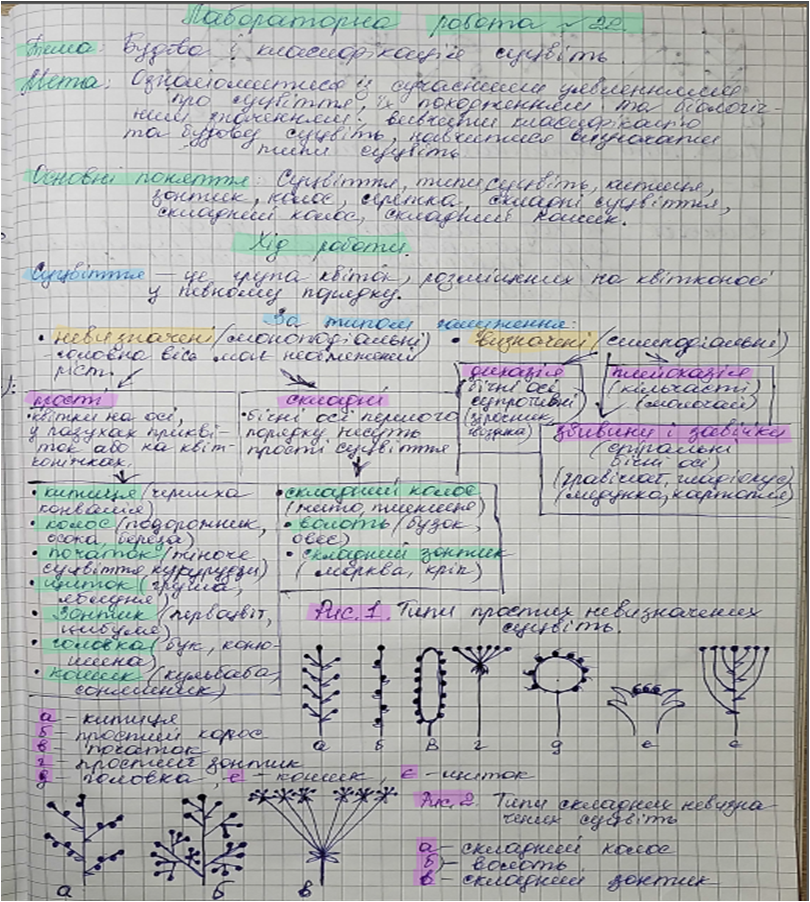 Лабораторна робота №22.
Тема: Будова і класифікація суцвіть.
Мета: Ознайомитися із сучасними уявленнями
про суцвіття, їх походженням та біологіч-
ним значенням; вивчити класифікацію
та будову суцвіть, навчитися визначати
типи суцвіть.
Основні поняття: Суцвіття, типи суцвіть, китиця,
зонтик, колос, сережка, складні суцвіття,
складний колос, складний кошик.
Хід роботи.
Суцвіття – це група квіток, розміщених на квітконосі
у певному порядку.
За типом галуження:
• невизначені (моноподіальні)
- головна вісь має необмежений
ріст.
• визначені (симподіальні)
дихазія
(бічні осі
супротивні)
(зірочник,
гвоздика)
плейохазія
(кільчасті)
(молочай)
звивини і завійки
(спіральні
бічні осі)
(гравілат, гладіолус)
(медунка, картопля)
прості
• квітки на осі,
у пазухах прикві-
ток або на квіт-
конічках.
складні
• бічні осі першого
порядку несуть
прості суцвіття
• китиця (черемха
конвалія)
• колос (подорожник,
осока, береза)
• початок (жіноче
суцвіття кукурудзи)
• щиток (груша,
яблуня)
• зонтик (первоцвіт,
цибуля)
• головка (бук, коню-
шина)
• кошик (кульбаба,
соняшник)
• складний колос
(жито, пшениця)
• волоть (бузок,
овес)
• складний зонтик
(морква, кріп)
Рис. 1. Типи простих невизначених
суцвіть.
а б в г д е є
а – китиця
б – простий колос
в – початок
г – простий зонтик
д – головка, е – кошик, є – щиток
Рис. 2. Типи складних невизна-
чених суцвіть
а – складний колос
б – волоть
в – складний зонтик
а б в